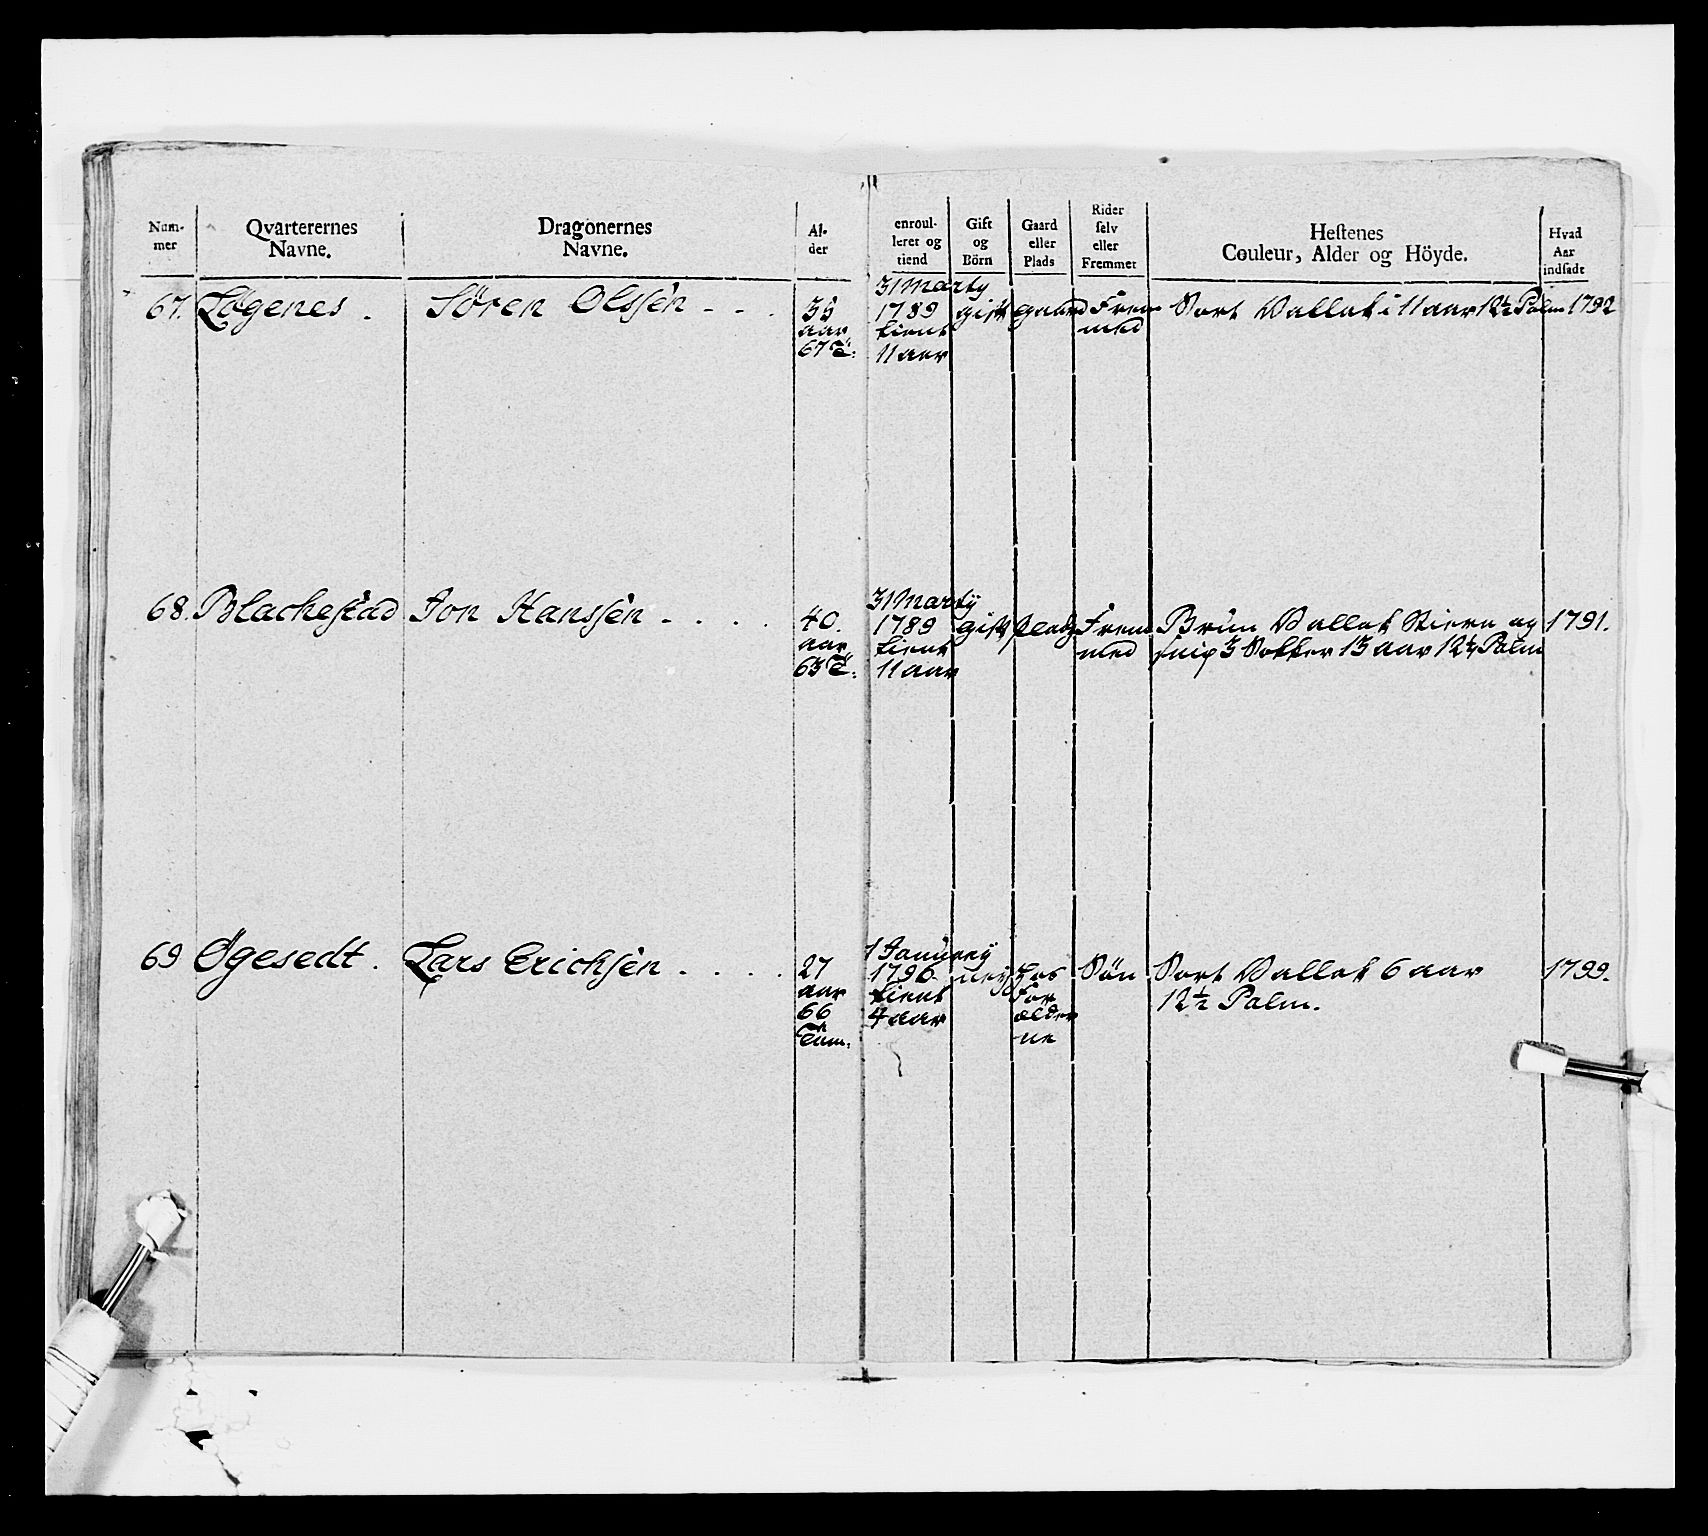 Num-
mer
Qvarterernes
Navne.
Dragonernes
Navne.
Al-
der
enroul-
leret og
tiend
Gift
og
Börn
Gaard
eller
Plads
Rider
selv
eller
Fremmet
Hestenes
Couleur, Alder og Höyde.
Hvad
Aar
indsadt
67. Løgenes. Søren Olssen - - .
35
aar
67 T:
31 Marty
1789
tient
11 aar
gift
gaard
Frem
med
Sort Vallak i 11 aar 12½ Palm
1792
68. Blachestad Jon Hanssen - . . .
40.
aar
63 T:
31 Marty
1789
tient
11 aar
gift
Plads
Frem
med
Brun Vallak Stiern og
snip 3 Sokker 13 aar 12½ Palm
1791.
69 Øgesedt. Lars Erichsen . . . .
27
aar
66
Tom:
1 January
1796
tient
4 aar
ney
hos
For
ælder
ne
Søn
Sort Vallak 6 aar
12½ Palm.
1799.